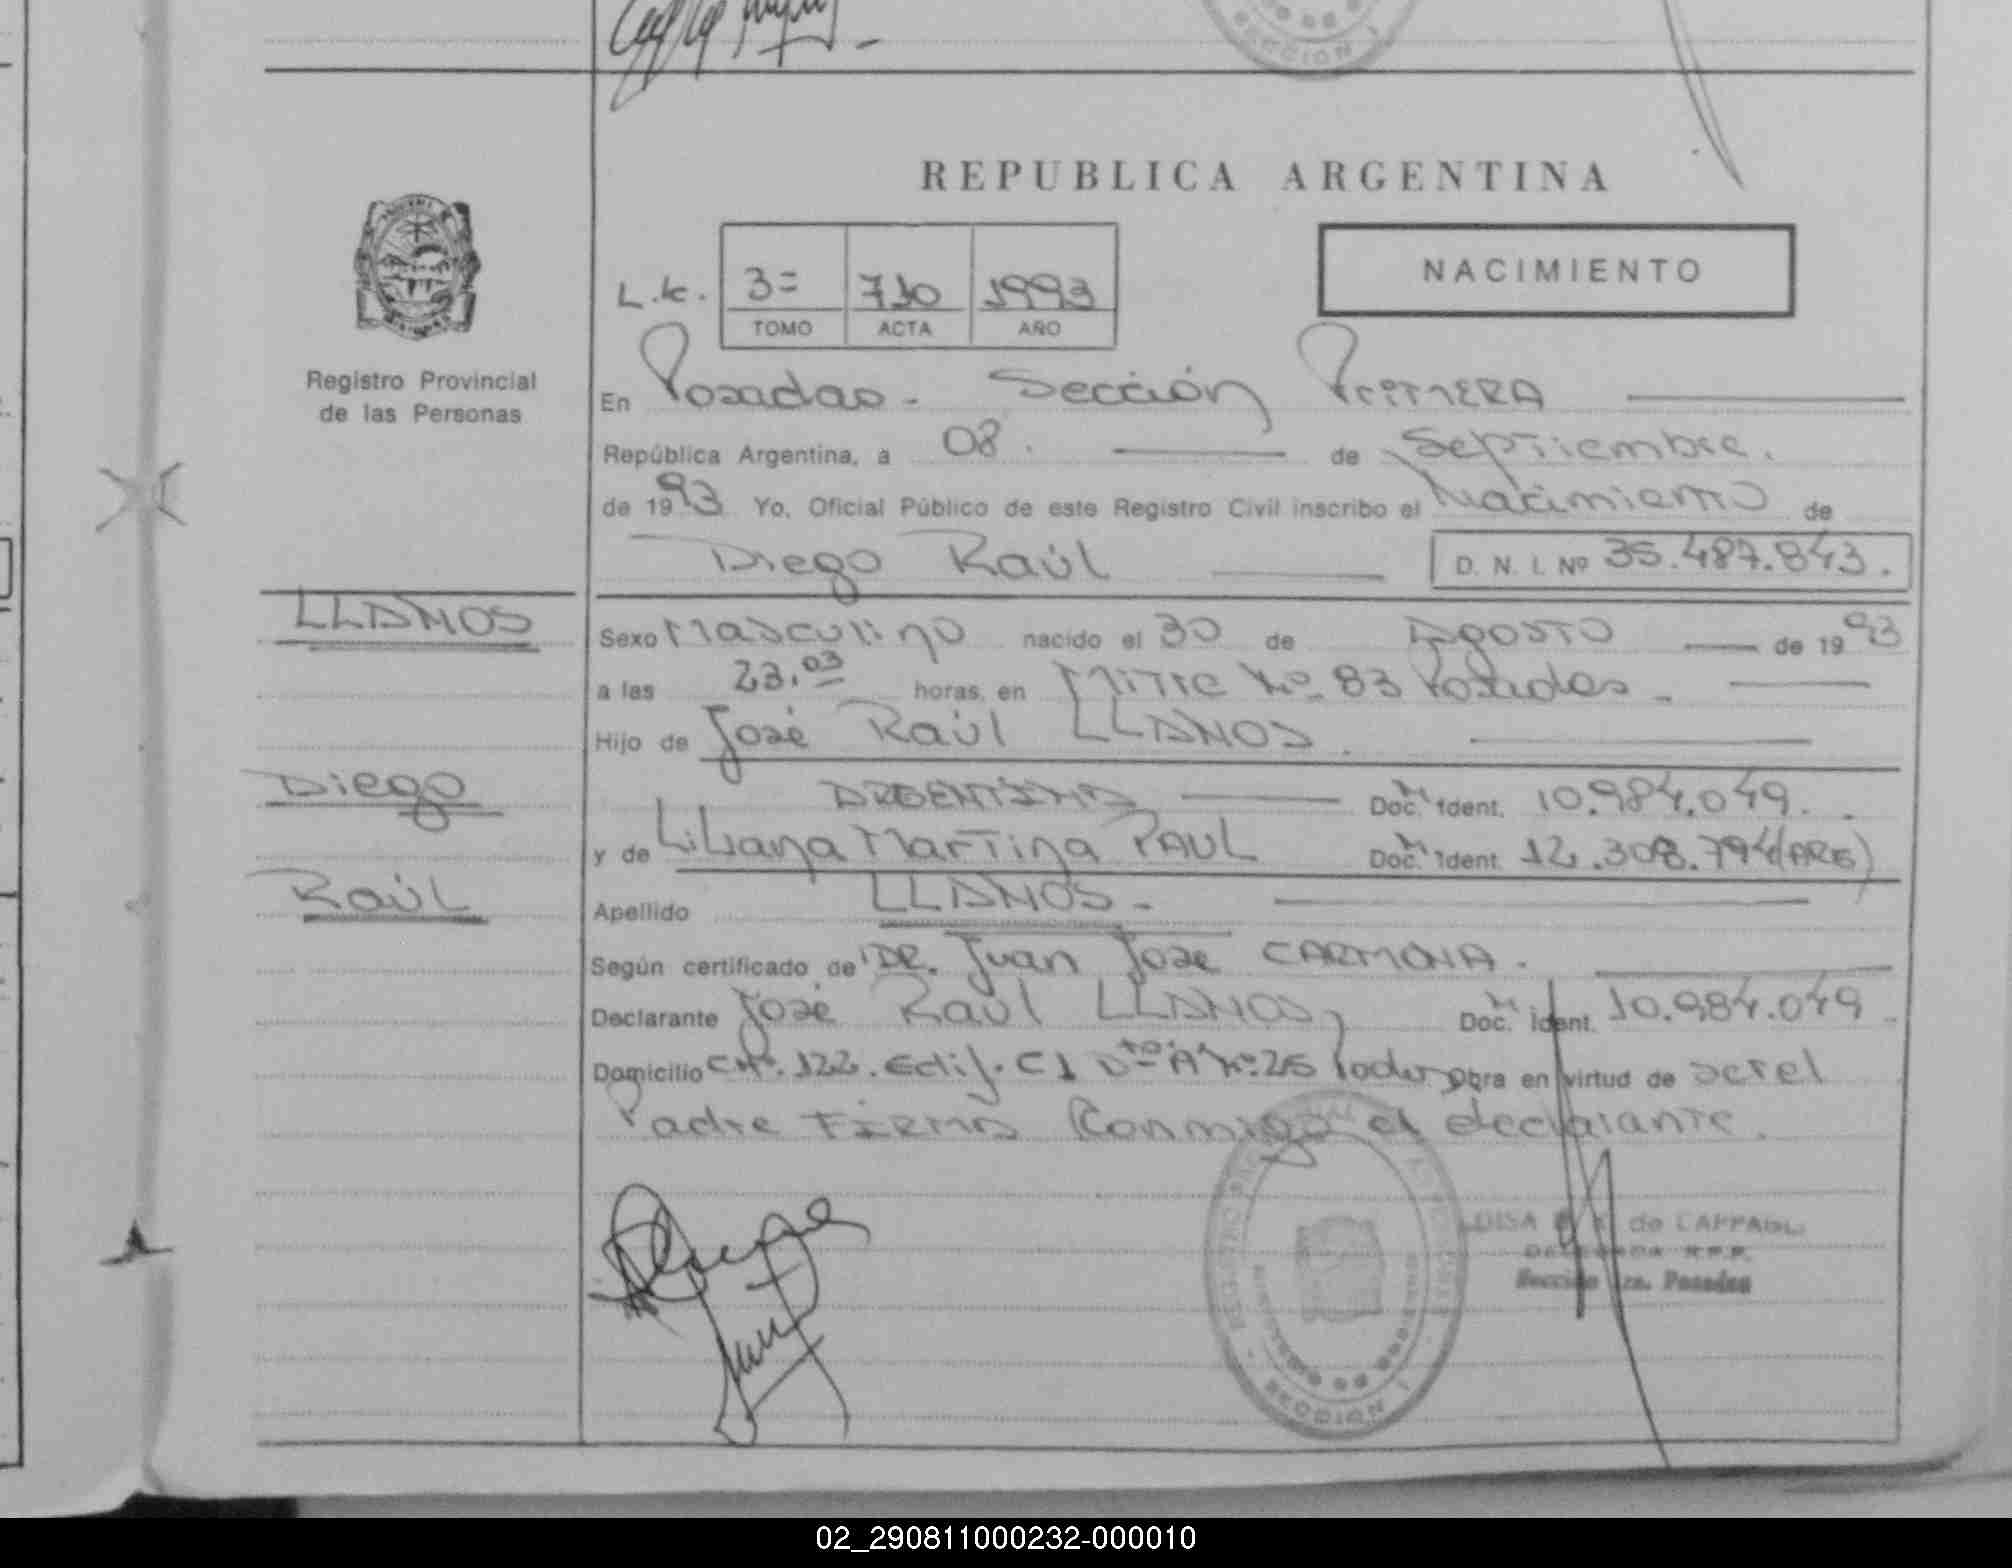 REPUBLICA ARGENTINA
NACIMIENTO
L.c. 3= 710 1993
TOMO ACTA AÑO
Registro Provincial
de las Personas
En Posadas - Sección Primera
República Argentina, a 08. de Septiembre.
de 1993 Yo, Oficial Público de este Registro Civil inscribo el Nacimiento de
Diego Raúl D. N. I. Nº 35.487.843.
LLANOS
Sexo Masculino nacido el 30 de Agosto de 1993
a las 23.03 horas, en Mitre Nº 83 Posadas -
Hijo de José Raúl LLANOS.
Diego
ARGENTINO Doc. Ident. 10.984.049.
y de Liliana Martina PAUL Doc. Ident. 12.308.794 (ARG)
Raúl
Apellido LLANOS -
Según certificado de DR. Juan José CARMONA.
Declarante José Raúl LLANOS, Doc. Ident. 10.984.049
Domicilio CHº. 122. Edif. C1 Dto "A" Nº 26 obra en virtud de ser el
Padre Firma Conmigo el declarante.
de
Sección 1ra. Posadas
SECCION 1
02_290811000232-000010